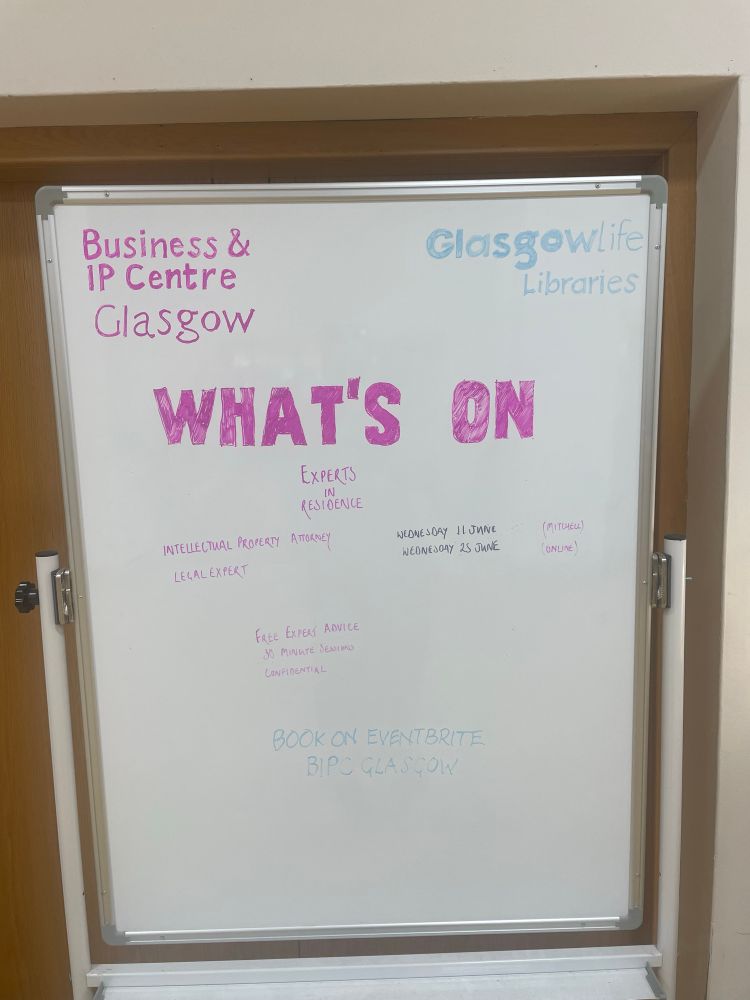 Business &
IP Centre
Glasgow
Glasgowlife
Libraries
WHAT'S ON
EXPERTS
IN
RESIDENCE
INTELLECTUAL PROPERTY ATTORNEY
WEDNESDAY 11 JUNE (MITCHELL)
WEDNESDAY 25 JUNE (ONLINE)
LEGAL EXPERT
FREE EXPERT ADVICE
30 MINUTE SESSIONS
CONFIDENTIAL
BOOK ON EVENTBRITE
BIPC GLASGOW